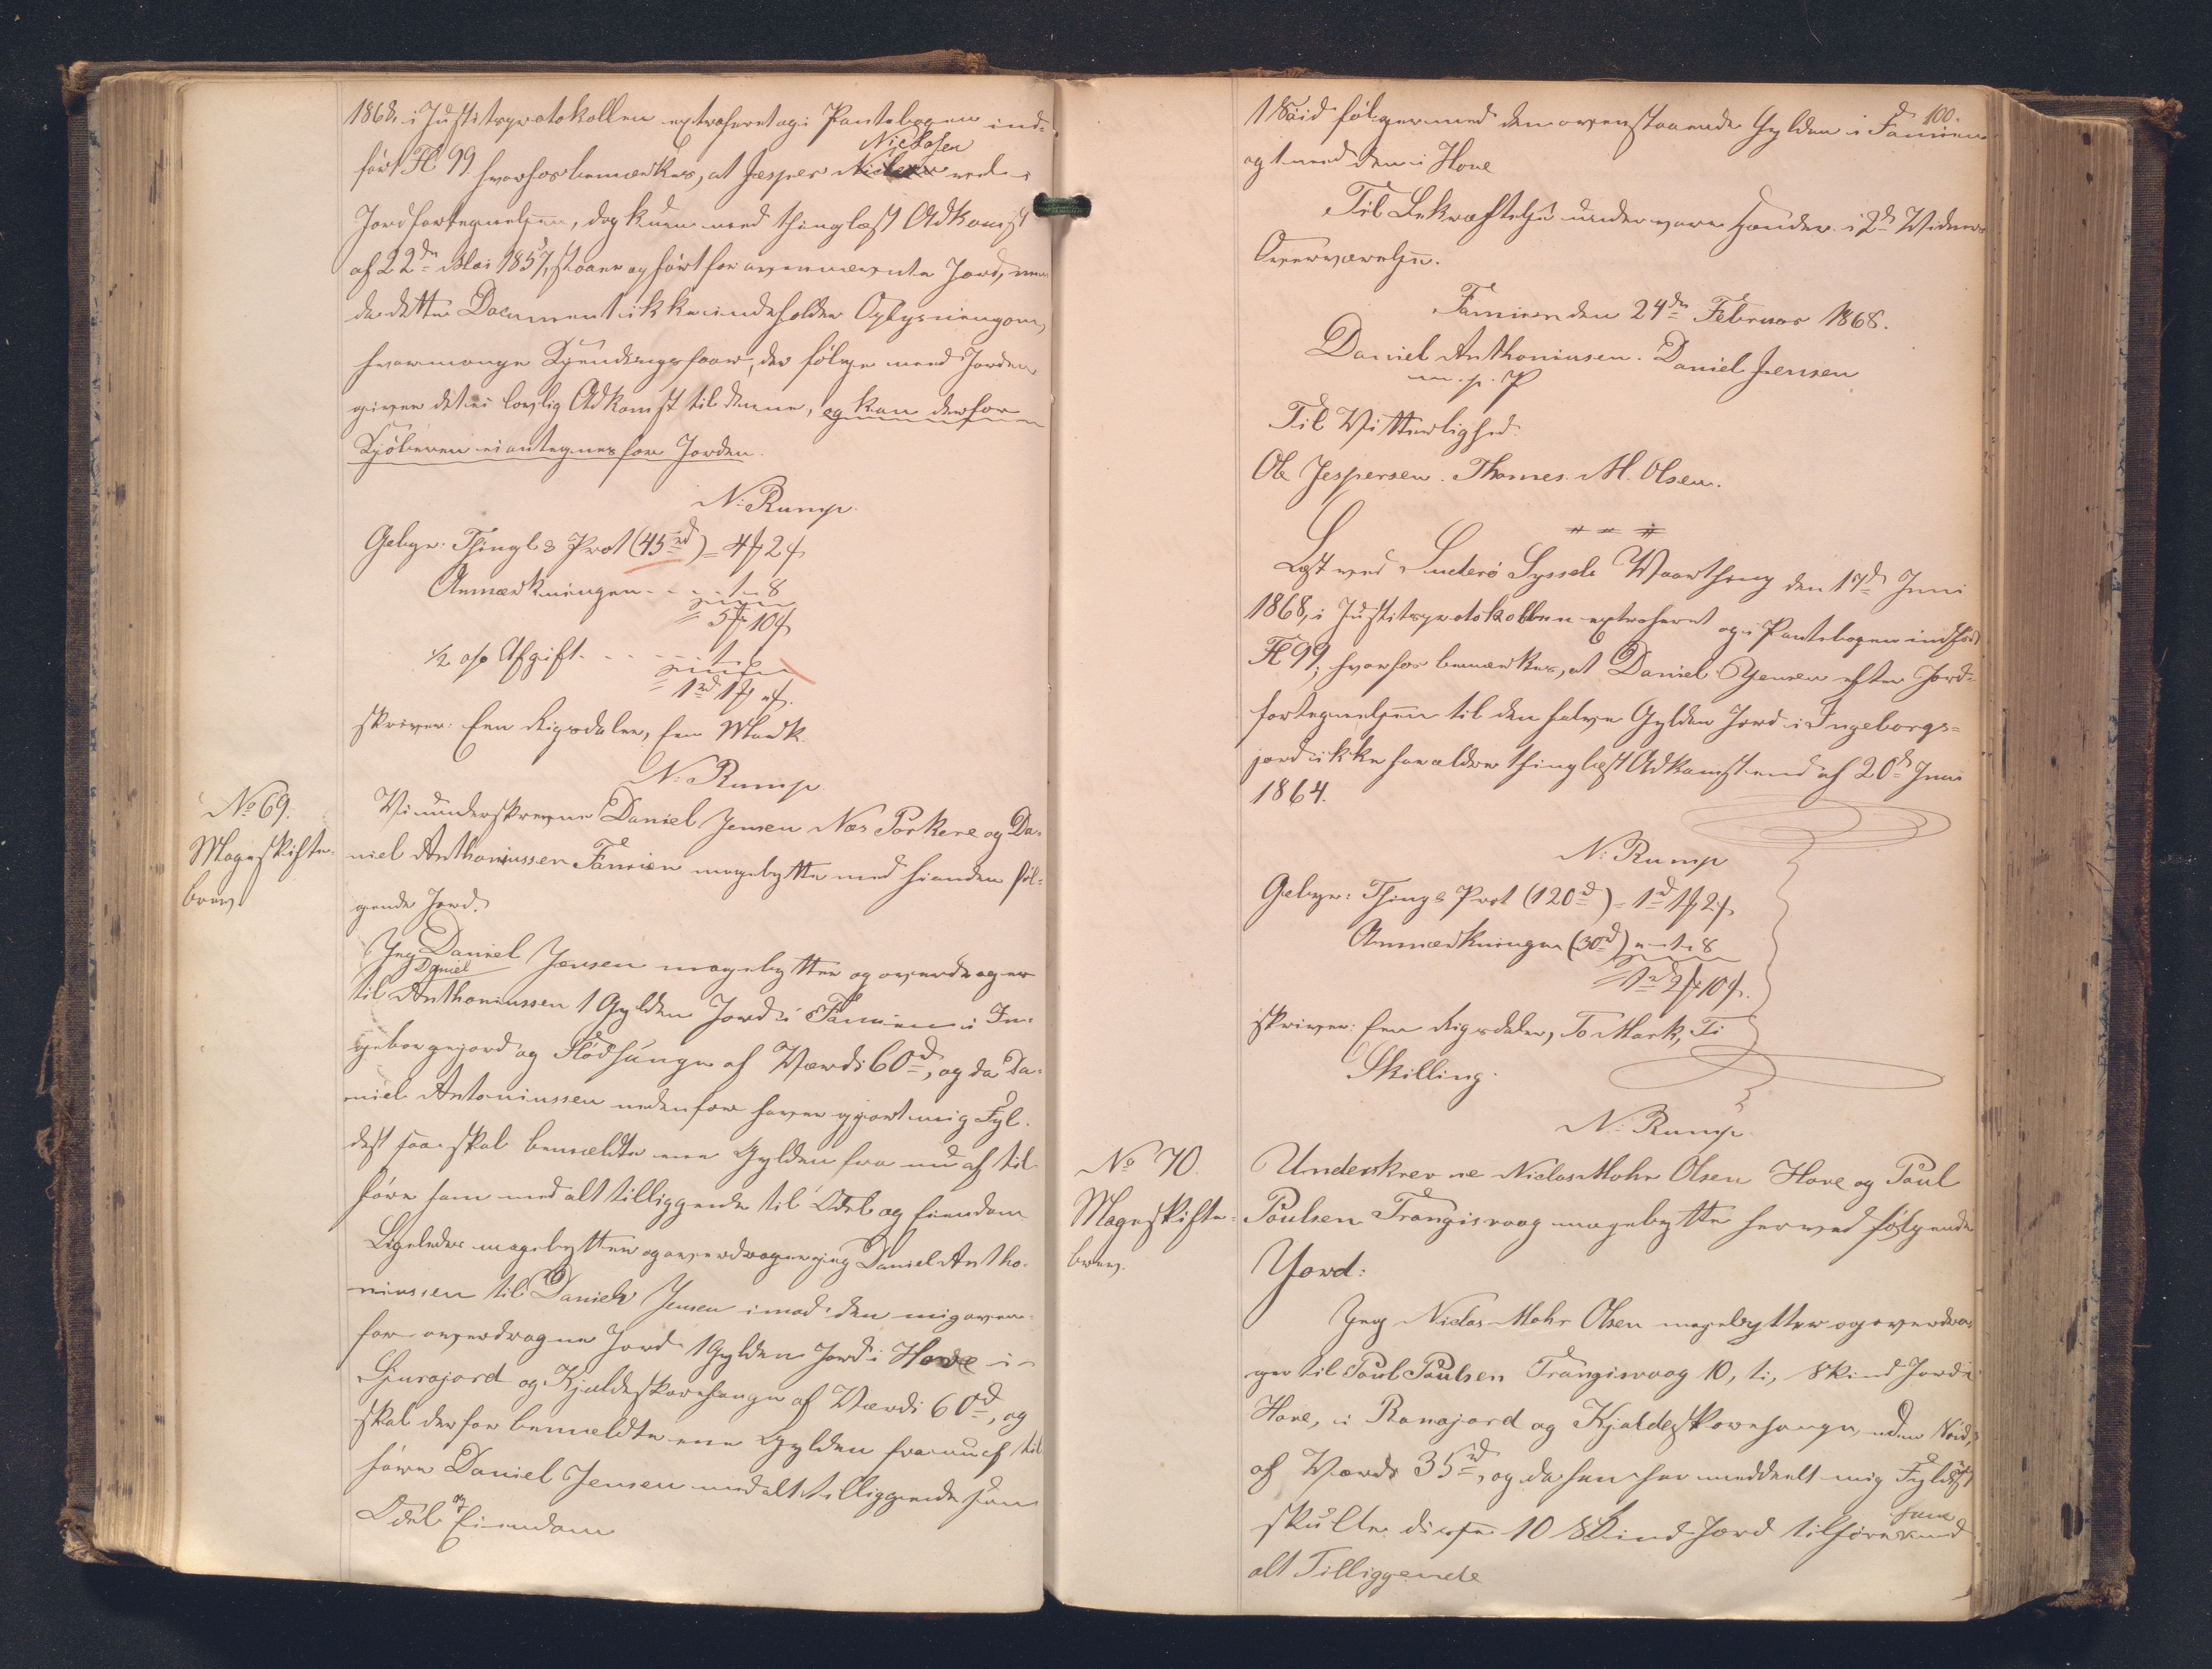 1868. i Justitsprotokollen extraheret og i Pantebogen ind-
ført Fl 99 hvorhos bemærkes, at Jesper Niclasen ved i
Jordfortegnelsen, dog kun med thinglæst Adkomst
af 22de Mai 1857, staaer opført for ovennævnte Jord, men
da dette Document ikke indeholder Oplysning om,
hvormange Kjendingsfaar, der følge med Jorden
giver det ei lovlig Adkomst til denne, og kan derfor
Kjøberen ei antegnes for Jorden.
N. Rump.
Gebyr: Thingl & Prot (45rd) = 4 2
Anmærkningen - - - 1 - 8
= 5 10
½ o/o Afgift. - - - - 1 - 6
= 1rd 1
skriver: Een Rigsdaler, Een Mark.
N. Rump
No 69.
Mageskifte-
brev.
Vi underskrevne Daniel Jensen Næs Porkere og Da-
niel Anthoniussen Famien magebytte med hinanden føl-
gende Jord.
Jeg Daniel Jensen magebytter og overdrager
til Daniel Anthoniussen 1 Gylden Jord i Famien i In-
geborgejord og Flødhaugen af Værdi 60d, og da Da-
niel Antoniussen nedenfor haver gjort mig Fyl-
dest saa skal bemældte ene Gylden fra nu af til
høre ham med alt tilliggende til Odel og Eiendom
Ligeledes magebytter og overdrager jeg Daniel Antho-
niussen til Daniel Jensen imod den mig oven-
for overdragne Jord 1 Gylden Jord i Hove i
Sjurajord og Kjaldeskorehaugen af Værdi 60d, og
skal derfor bemeldte ene Gylden fra nu af til
høre Daniel Jensen med alt tilliggende som
Odel og Eiendom
100.
1 Søid følger med den ovenstaaende Gylden i Famien
og 1 med den i Hove
Til Bekræftelse under vore Hænder i 2de Vidners
Overværelse.
Famien den 24de Februar 1868.
Daniel Anthoniusen. Daniel Jensen
m. p. P
Til Vitterlighed
Ole Jespersen. Thomes M. Olsen.
Læst ved Suderø Syssels Vaarthing den 17de Juni
1868, i Justitsprotokollen extraheret og i Pantebogen indført
Fl 99; hvorhos bemærkes, at Daniel Jensen efter Jord-
fortegnelsen til den halve Gylden Jord i Ingeborgs-
jord ikke har ældre thinglæst Adkomst end af 20de Juni
1864.
N. Rump
Gebyr: Thingl & Prot (120d) = 1d 1 2
Anmærkningen (30d) " - 1 - 8
= 1rd 2 10
skriver: Een Rigsdaler, To Mark, Ti
Skilling.
N. Rump
No 70.
Mageskifte-
brev.
Underskrevne Niclas Mohr Olsen Hove og Poul
Poulsen Trangisvaag magebytte herved følgende
Jord:
Jeg Niclas Mohr Olsen magebytter og overdra-
ger til Poul Poulsen Trangisvaag 10, ti, Skind Jord i
Hove, i Ranajord og Kjaldeskorehaugen, uden Søid,
af Værdi 35rd, og da han har meddeelt mig Fyldest
skulle disse 10 Skind Jord tilhøre ham med
alt Tilliggende